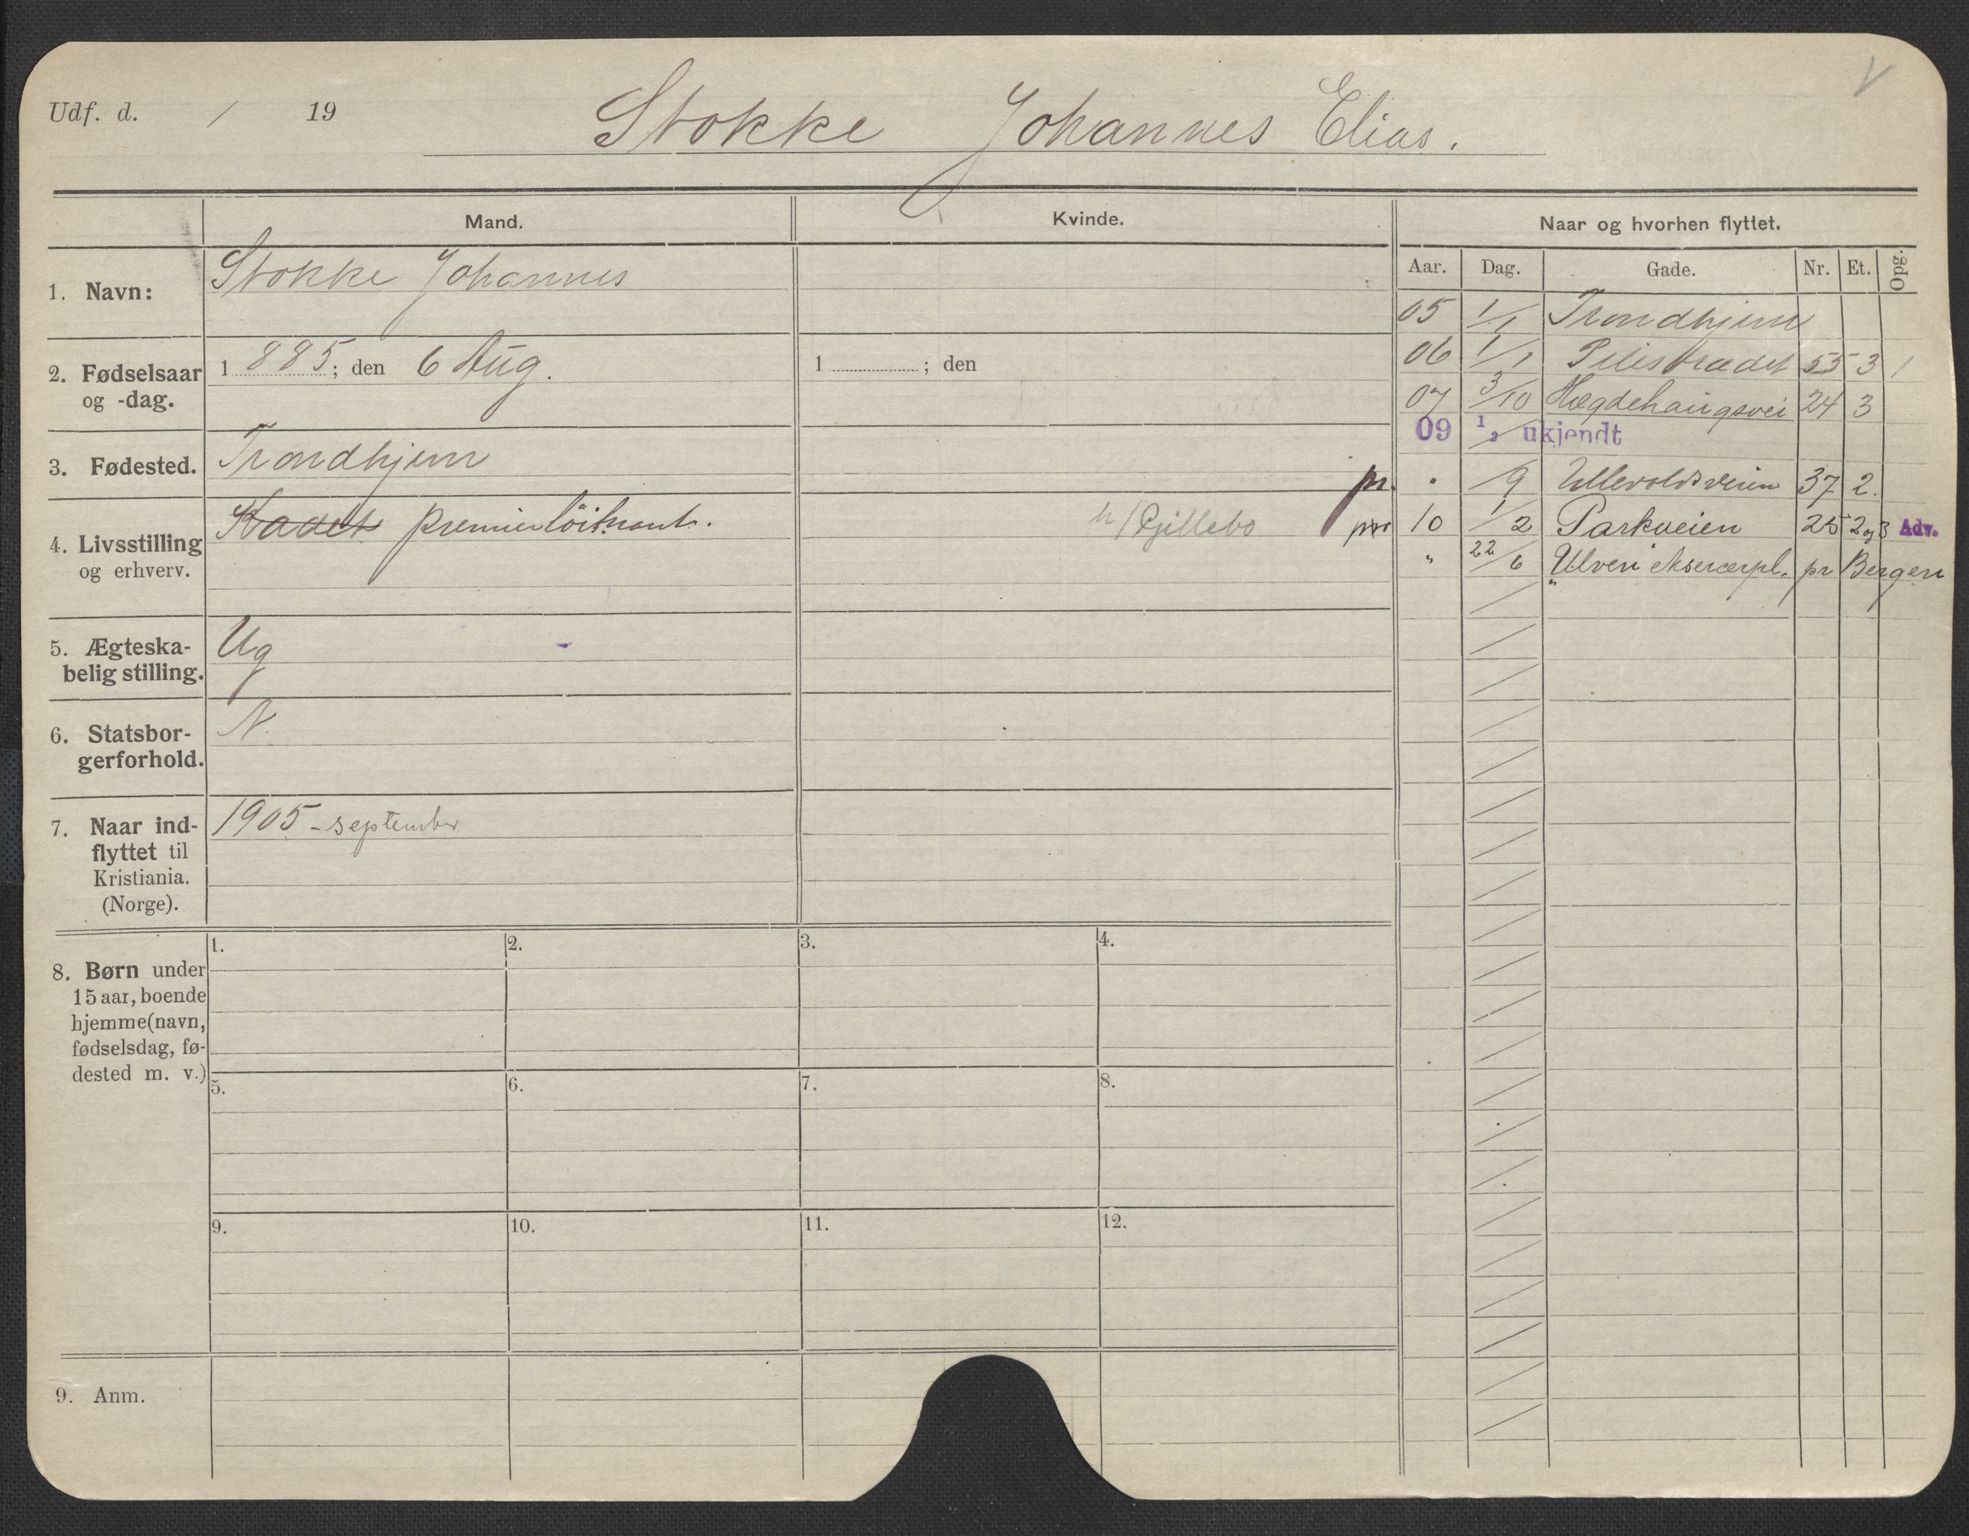 Udf. d. / 19 Stokke Johannes Elias.
Mand. Kvinde. Naar og hvorhen flyttet.
Aar. Dag. Gade. Nr. Et. Opg.
1. Navn: Stokke Johannes
2. Fødselsaar og -dag. 1885; den 6 Aug. 1 ; den
3. Fødested. Trondhjem
4. Livsstilling og erhverv. Kadet premierløitnant.
h/Gjillebo
5. Ægteska-
belig stilling. Ug
6. Statsbor-
gerforhold. N.
7. Naar ind-
flyttet til
Kristiania.
(Norge). 1905 - september
05 1/1 Trondhjem
06 1/1 Pilestrædet 55 3 1
07 3/10 Hægdehaugsvei 24 3
09 1/2 ukjendt
pr. " /9 Ullevoldsveien 37 2.
pr 10 1/2 Parkveien 25 2 og 3 Adv.
" 22/6 Ulven ekserserpl. pr Bergen
8. Børn under
15 aar, boende
hjemme (navn,
fødselsdag, fø-
dested m. v.)
1. 2. 3. 4.
5. 6. 7. 8.
9. 10. 11. 12.
9. Anm.